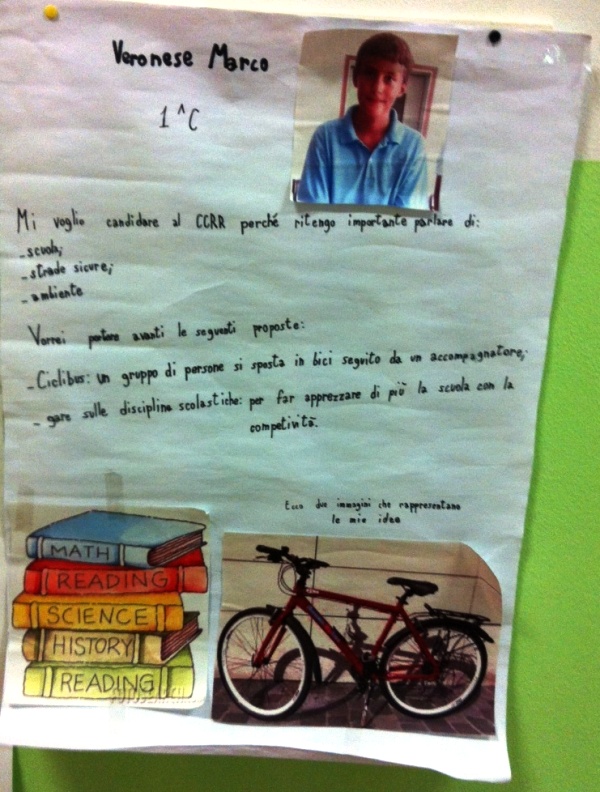 Veronese Marco
1^C
Mi voglio candidare al CCRR perché ritengo importante parlare di:
- scuola;
- strade sicure;
- ambiente
Vorrei portare avanti le seguenti proposte:
- Ciclibus: un gruppo di persone si sposta in bici seguito da un accompagnatore;
- gare sulle discipline scolastiche: per far apprezzare di più la scuola con la
competività.
Ecco due immagini che rappresentano
le mie idee
MATH
READING
SCIENCE
HISTORY
READING